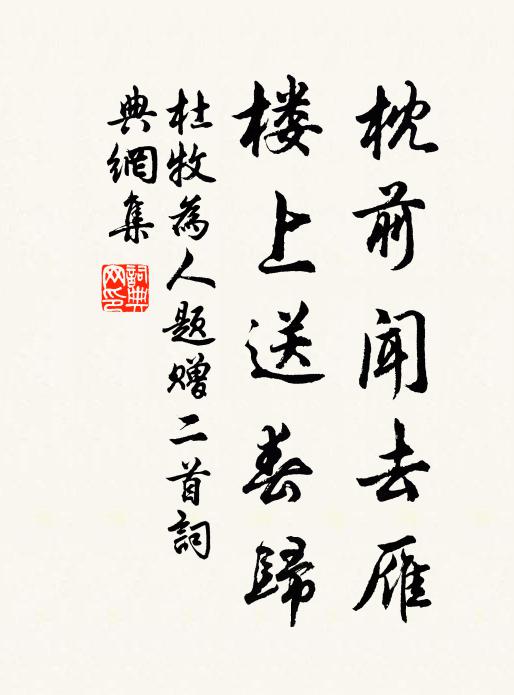 枕前闻去雁
楼上送春歸
杜牧為人题赠二首詞
典網集
詞典
网印